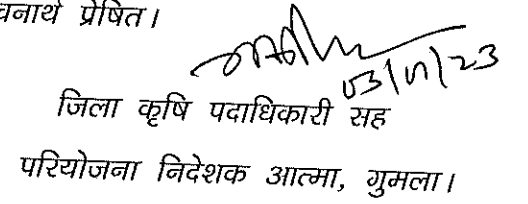 वनार्थ प्रेषित।
जिला कृषि पदाधिकारी सह
परियोजना निदेशक आत्मा, गुमला।